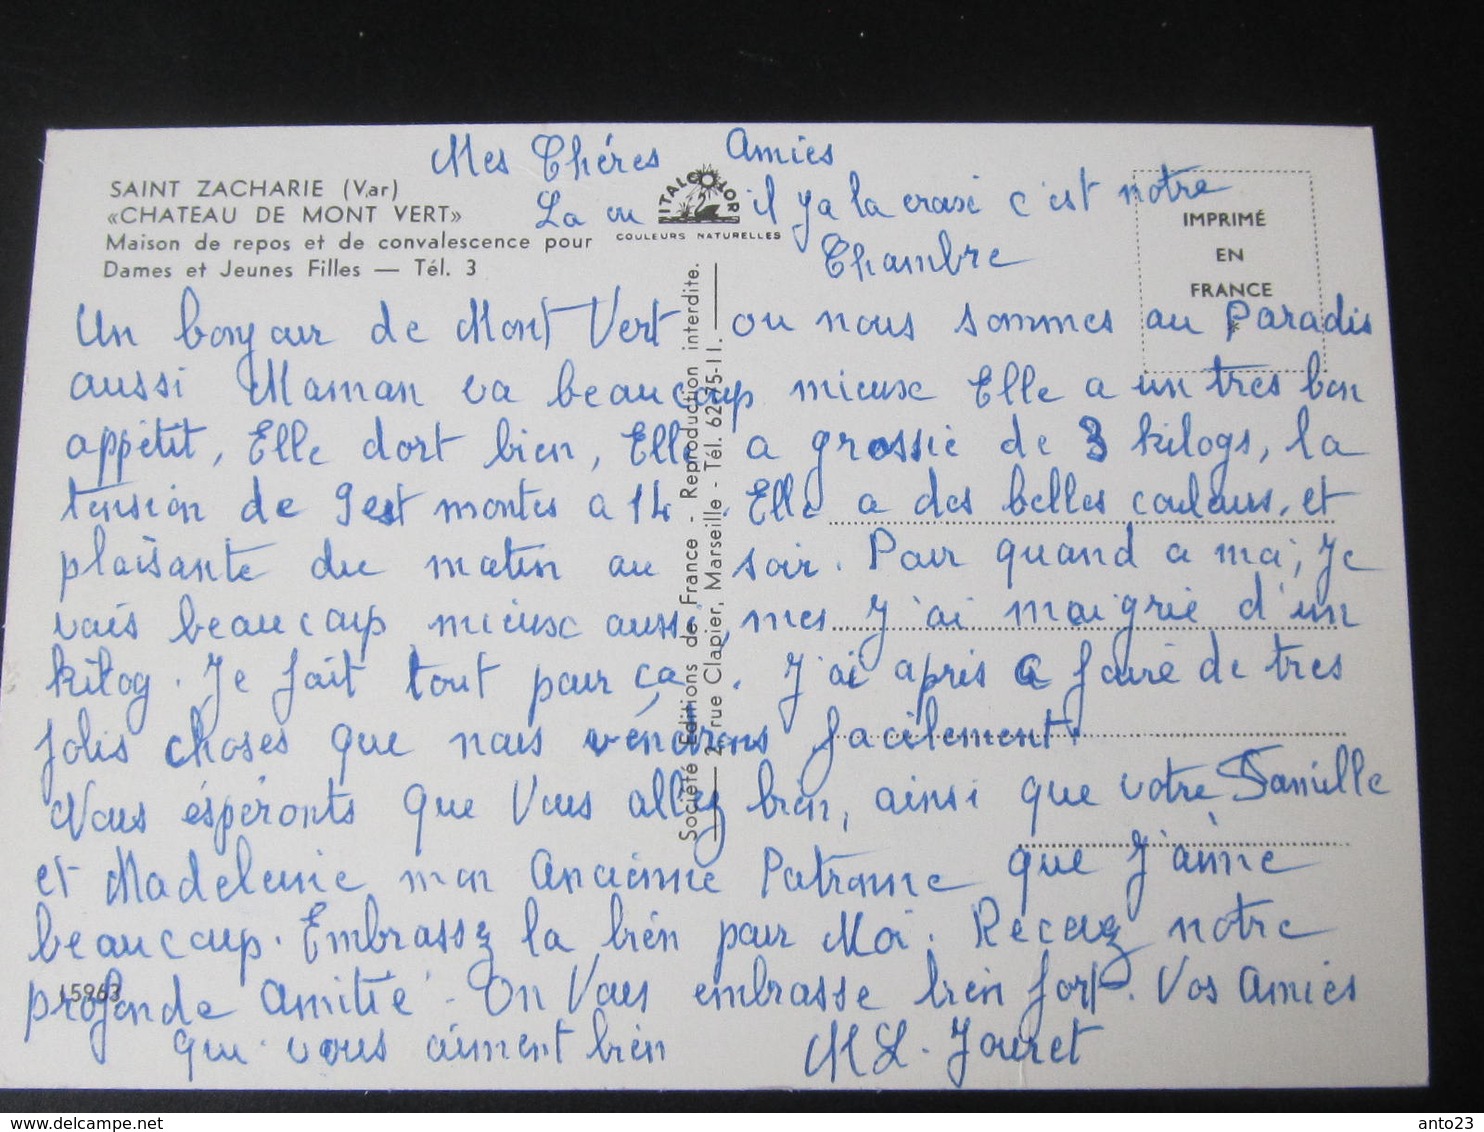 Mes Chéres Amies
SAINT ZACHARIE (Var)
«CHATEAU DE MONT VERT»
Maison de repos et de convalescence pour
Dames et Jeunes Filles — Tél. 3
ITALCOLOR
COULEURS NATURELLES
La ou il y a la croix c'est notre
Chambre
IMPRIMÉ
EN
FRANCE
Un bonjour de Mont Vert ou nous sommes au Paradis
aussi Maman va beaucoup mieux Elle a un tres bon
appétit, Elle dort bien, Elle a grossie de 3 kilogs, la
tension de 9 est montes a 14. Elle a des belles couleurs, et
plaisante du matin au soir. Pour quand a moi, Je
vais beaucoup mieux aussi, mes J'ai maigrie d'un
kilog. Je fait tout pour ça. J'ai apris a faire de tres
jolis choses que nous vendrons facilement.
Nous éspéronts que Vous allez bien, ainsi que votre Famille
et Madeleine mon Ancienne Patronne que J'aime
beaucoup. Embrassez la bien pour Moi. Recevez notre
profonde Amitié. On Vous embrasse bien fort. Vos Amies
qui vous aiment bien M L. Jouret
15963
Société Editions de France - Reproduction interdite.
2, rue Clapier, Marseille - Tél. 62-75-11.
delcampe.net
anto23